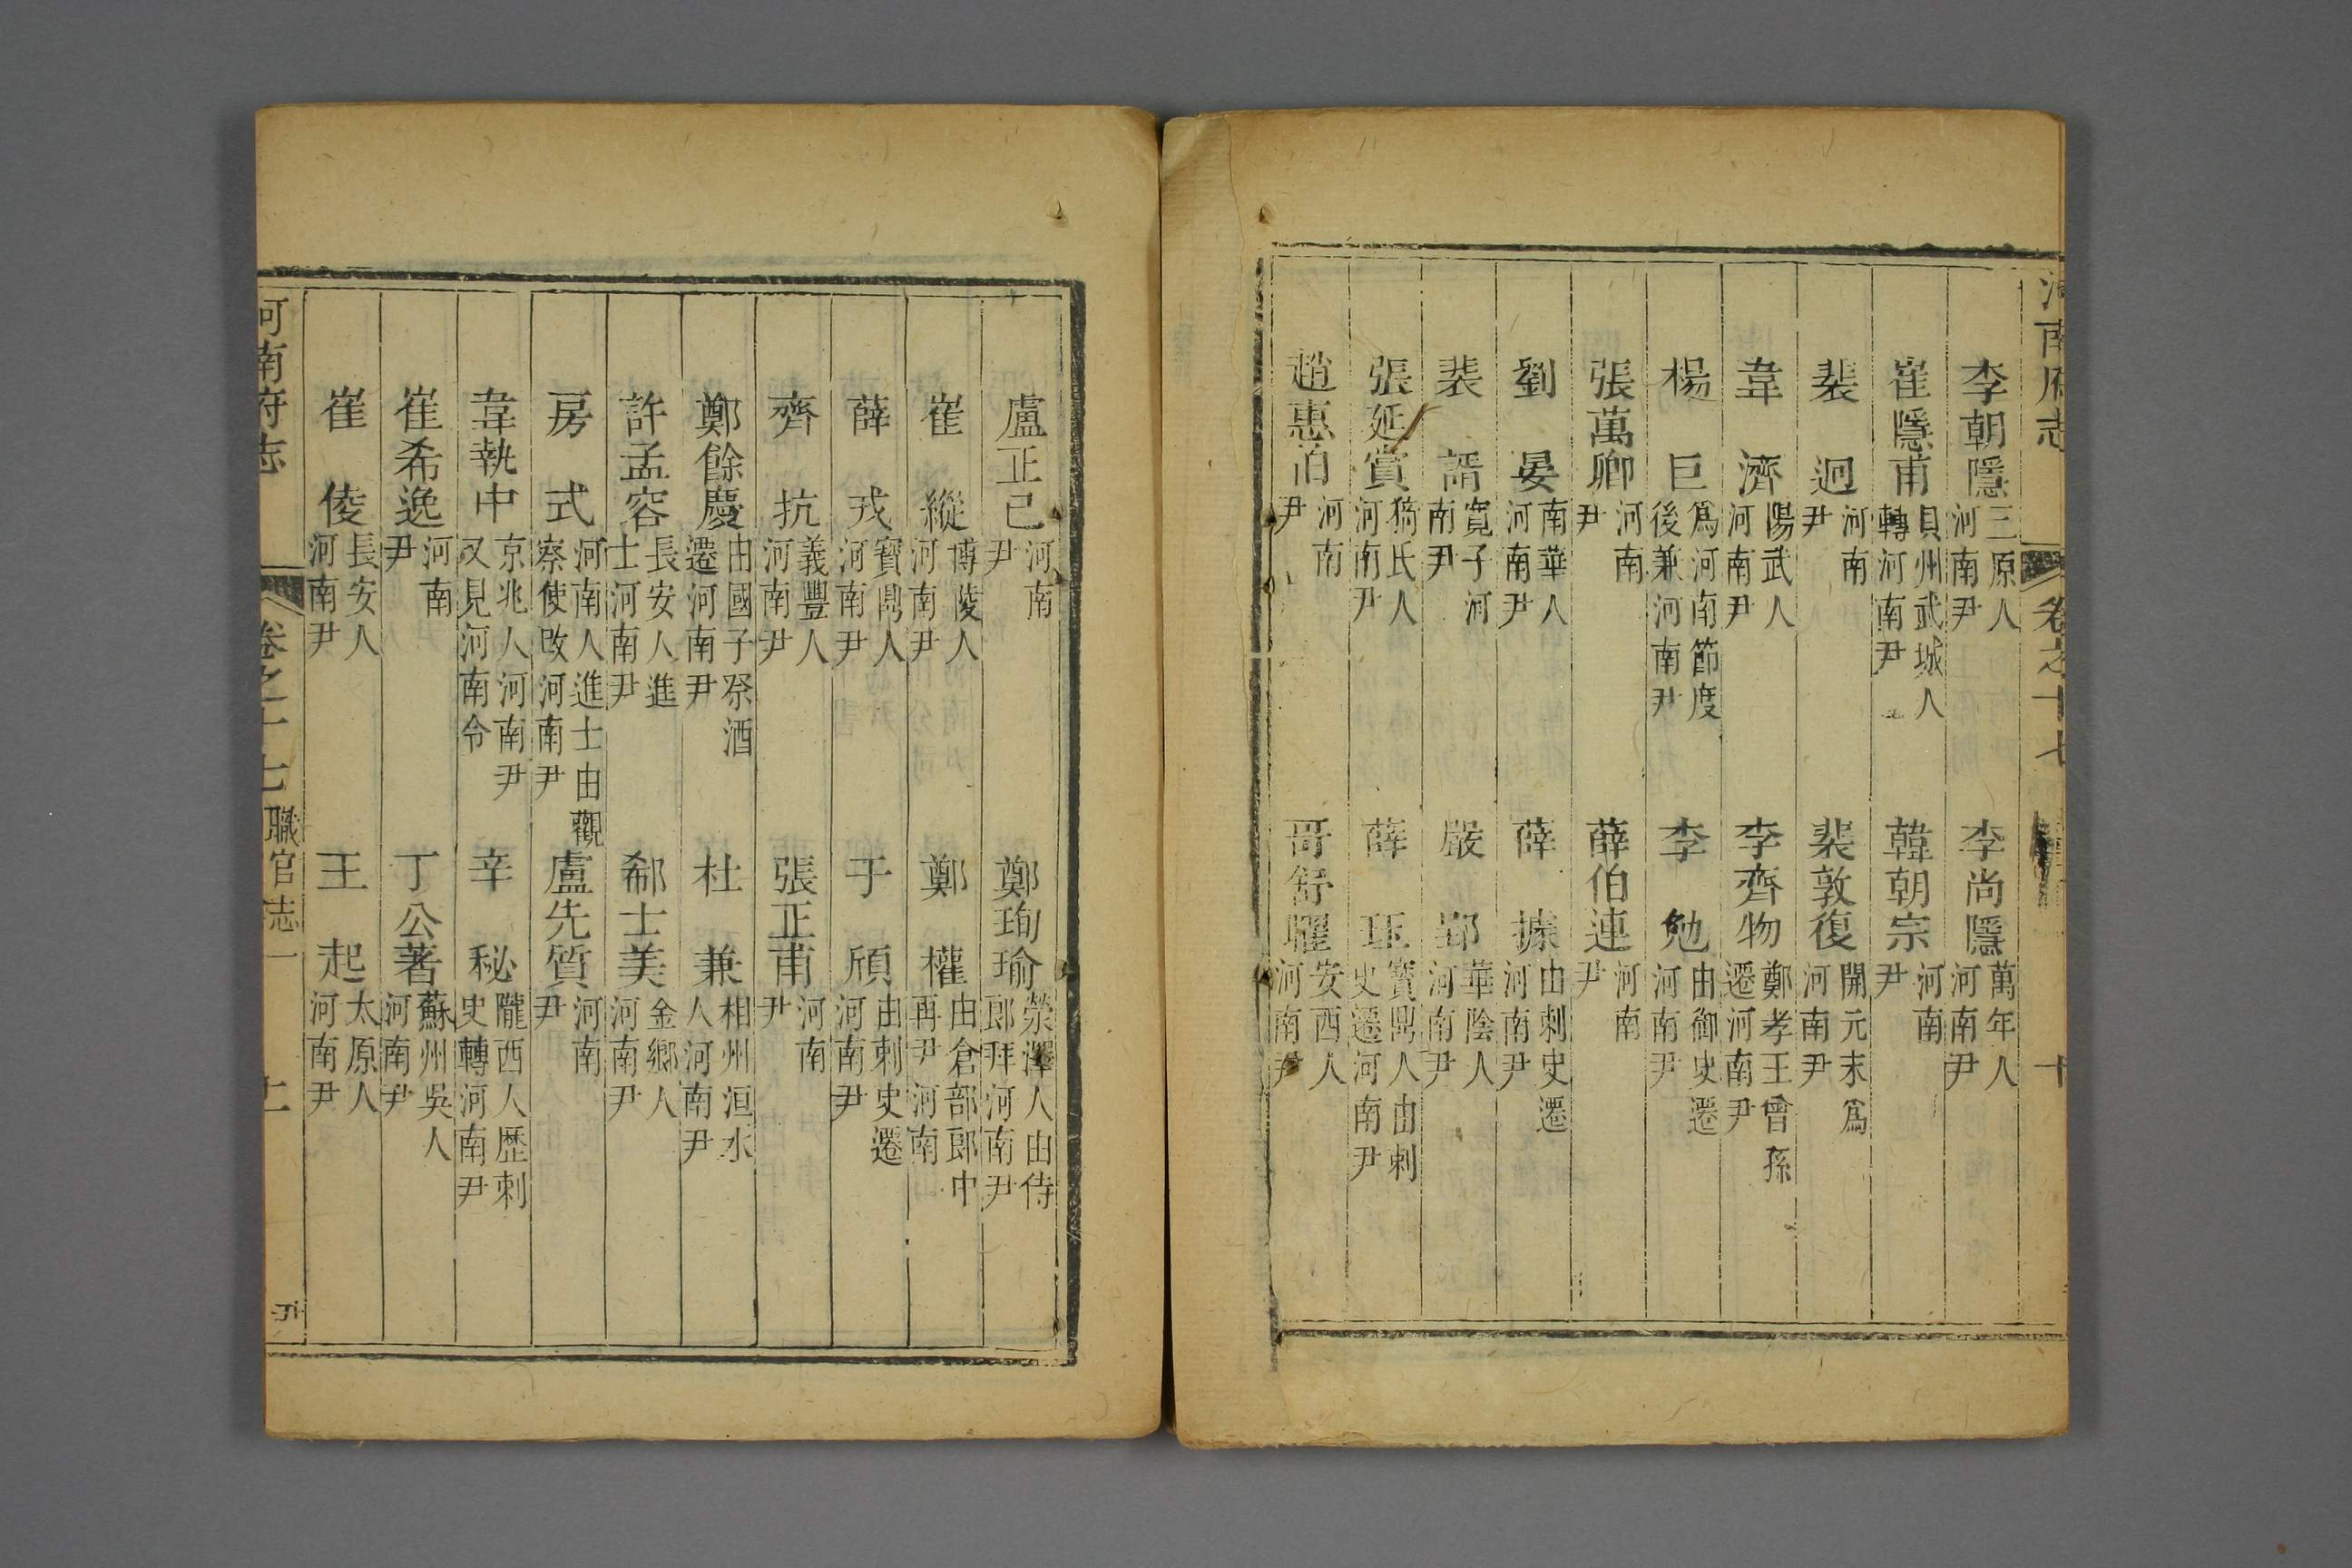 河南府志　卷之十七　十
李朝隱三原人河南尹　李尚隱萬年人河南尹
崔隱甫貝州武城人轉河南尹　韓朝宗河南尹
裴迥河南尹　裴敦復開元末爲河南尹
韋濟陽武人河南尹　李齊物鄭孝王曾孫遷河南尹
楊巨爲河南節度後兼河南尹　李勉由御史遷河南尹
張萬卿河南尹　薛伯連河南尹
劉晏南華人河南尹　薛據由刺史遷河南尹
裴諝寬子河南尹　嚴郢華陰人河南尹
張延賞猗氏人河南尹　薛珏寶鼎人由刺史遷河南尹
趙惠伯河南尹　哥舒曜安西人河南尹
盧正己河南尹　鄭珣瑜滎澤人由侍郎拜河南尹
崔縱博陵人河南尹　鄭權由倉部郎中再尹河南
薛戎寶鼎人河南尹　于頎由刺史遷河南尹
齊抗義豐人河南尹　張正甫河南尹
鄭餘慶由國子祭酒遷河南尹　杜兼相州洹水人河南尹
許孟容長安人進士河南尹　郗士美金鄉人河南尹
房式河南人進士由觀察使改河南尹　盧先質河南尹
韋執中京兆人河南尹又見河南令　辛秘隴西人歷刺史轉河南尹
崔希逸河南尹　丁公著蘇州吳人河南尹
崔倰長安人河南尹　王起太原人河南尹
河南府志　卷之十七　職官志一　十一